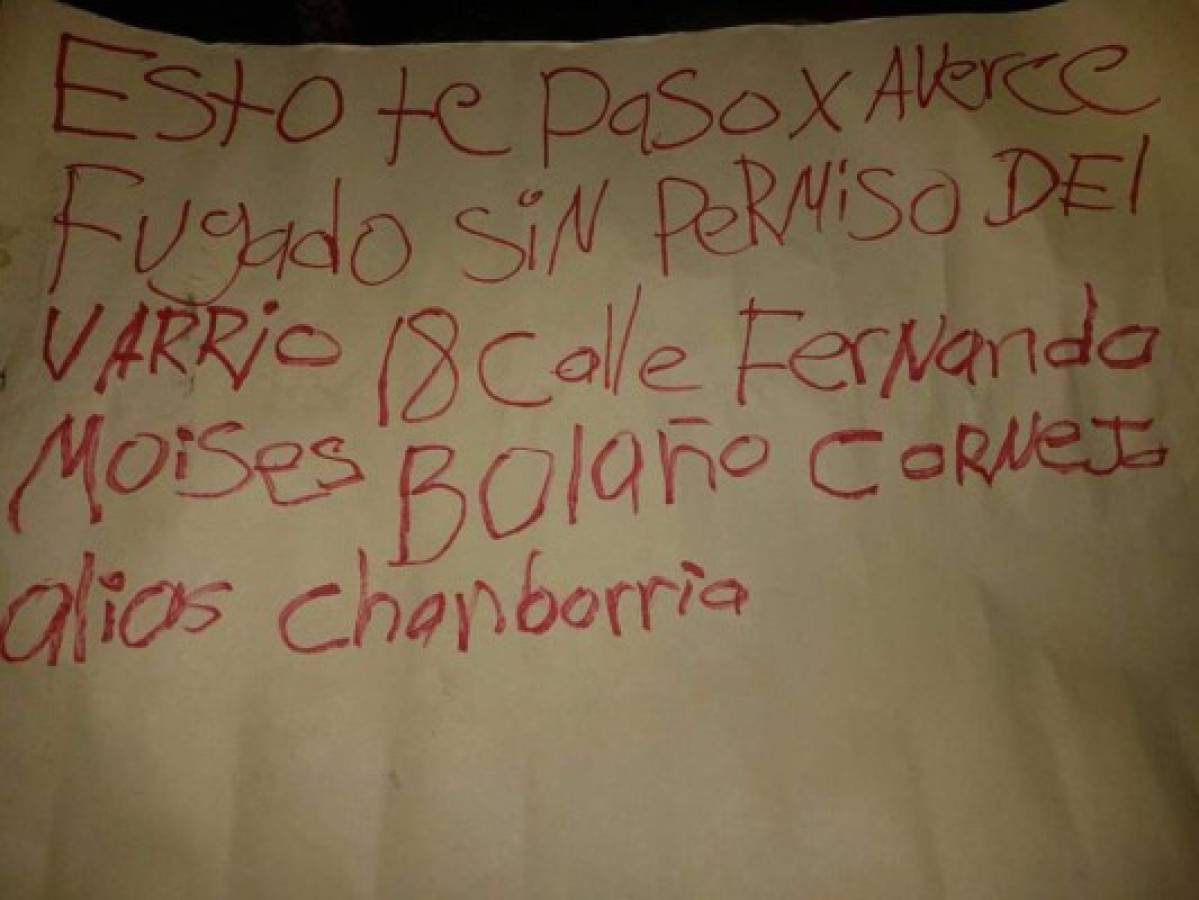 Esto te paso x Averce
Fugado sin permiso DEl
VARRio 18 Calle Fernando
Moises Bolaño CORNEJo
alias Chanborria